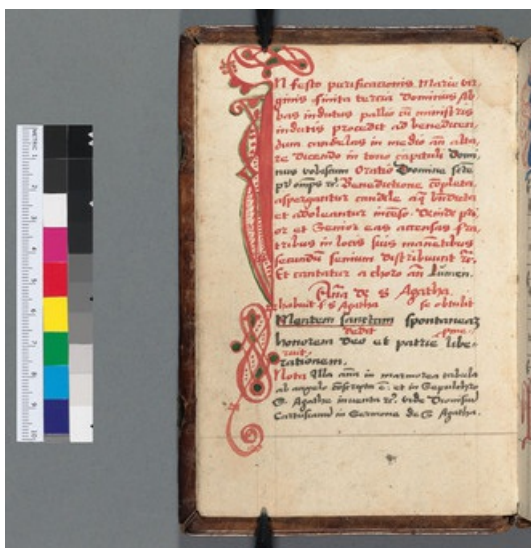 In festo purificationis Marie vir
ginis finita tercia Dominus Ab
bas indutus pallio cū ministris
indutis procedit ad benedicen
dum candelas in medio añ alta
re dicendo in tono capituli Domi
nus vobiscum Oratio Domine sctē
pr̄ omps Benedictione cōpleta
aspergantur candele aq̄ bn̄dicta
et adoleantur incēso. Deinde pri
or et Senior eas accensas fra
tribus in locis suis manētibus
secundū senium distribuunt
Et cantatur a choro añ Lumen.
Aña de S Agatha.
habuit S Agatha se obtulit
Mentem sanctam spontaneaȝ
dedit
honorem deo et patrie libe
rationem.
Nota Illa añā in marmorea tabela
ab angelo cōscripta ē: et in Sepulchro
S. Agathe inventa vide Dionisiū
Cartusianū in Sermone de S Agatha.